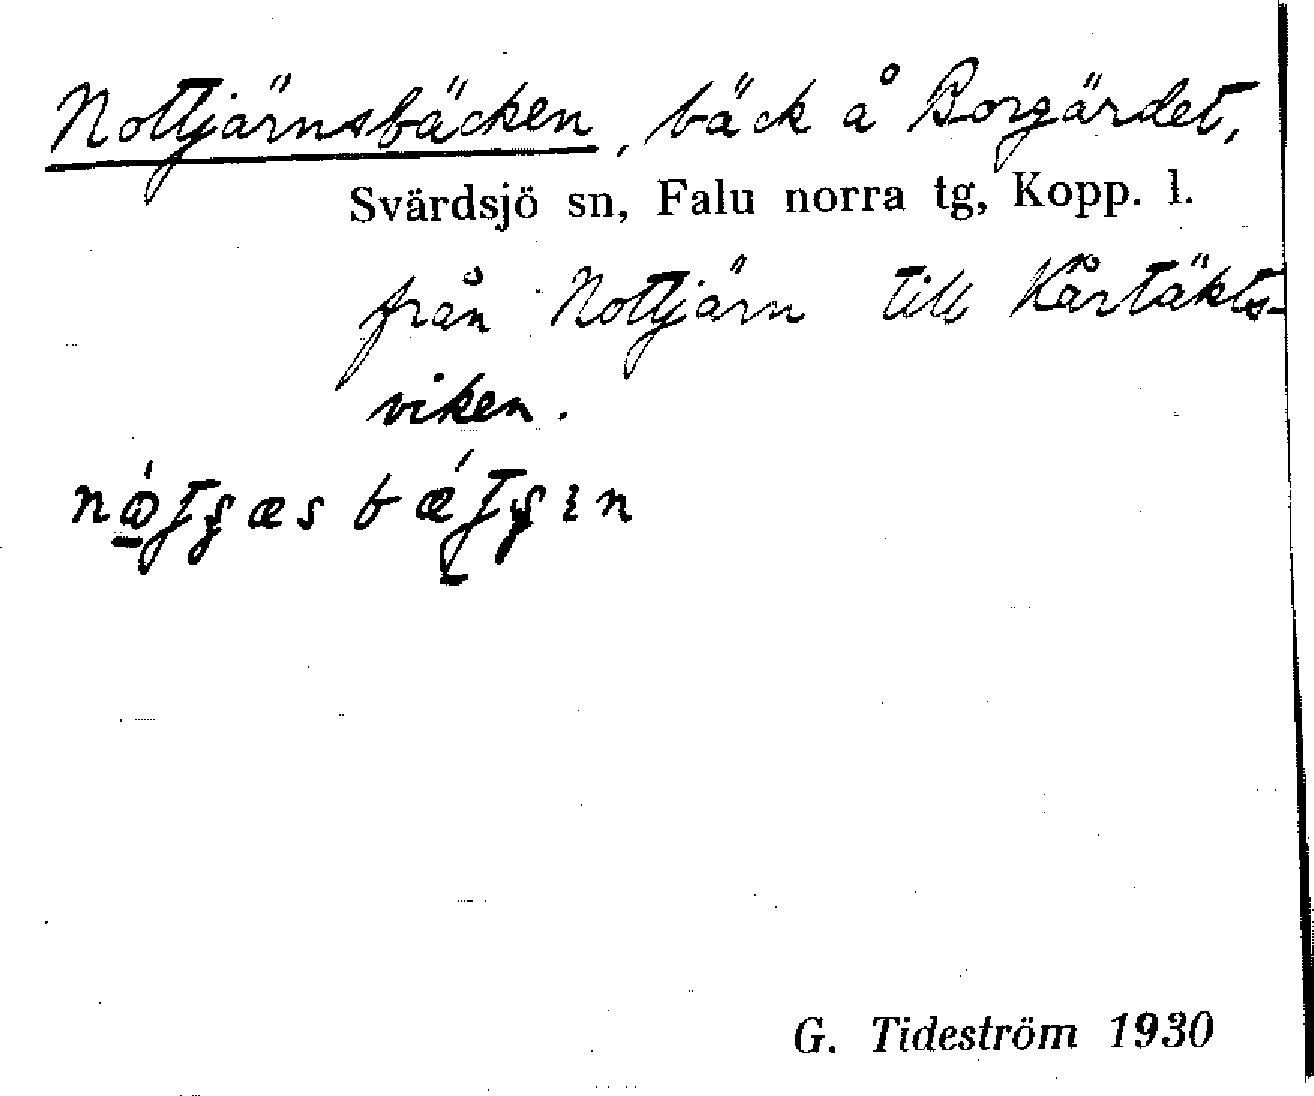 Nottjärnsbäcken, bäck å Borgärdet,
Svärdsjö sn, Falu norra tg, Kopp. l.
från Nottjärn till Kårtäkts-
viken.
G. Tideström 1930